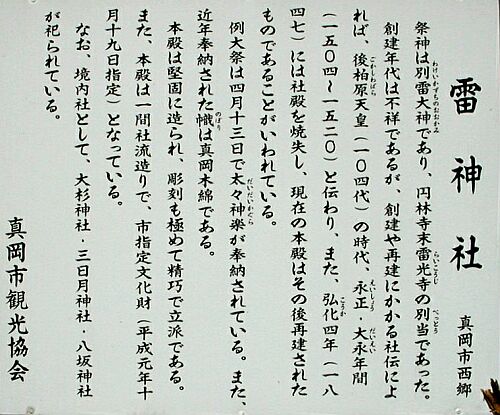 雷神社
真岡市西郷
祭神は別雷大神であり、円林寺末雷光寺の別当であった。
わけいかずちのおおかみ
らいこうじ
べっとう
創建年代は不祥であるが、創建や再建にかかる社伝によ
れば、後柏原天皇(一〇四代)の時代、永正・大永年間
ごかしわばら
えいしょう
だいえい
(一五〇四~一五二〇)と伝わり、また、弘化四年(一八
こうか
四七)には社殿を焼失し、現在の本殿はその後再建された
ものであることがいわれている。
例大祭は四月十三日で太々神楽が奉納されている。また、
だいだいかぐら
近年奉納された幟は真岡木綿である。
のぼり
本殿は堅固に造られ、彫刻も極めて精巧で立派である。
また、本殿は一間社流造りで、市指定文化財(平成元年十
月十九日指定)となっている。
なお、境内社として、大杉神社・三日月神社・八坂神社
が祀られている。
真岡市観光協会